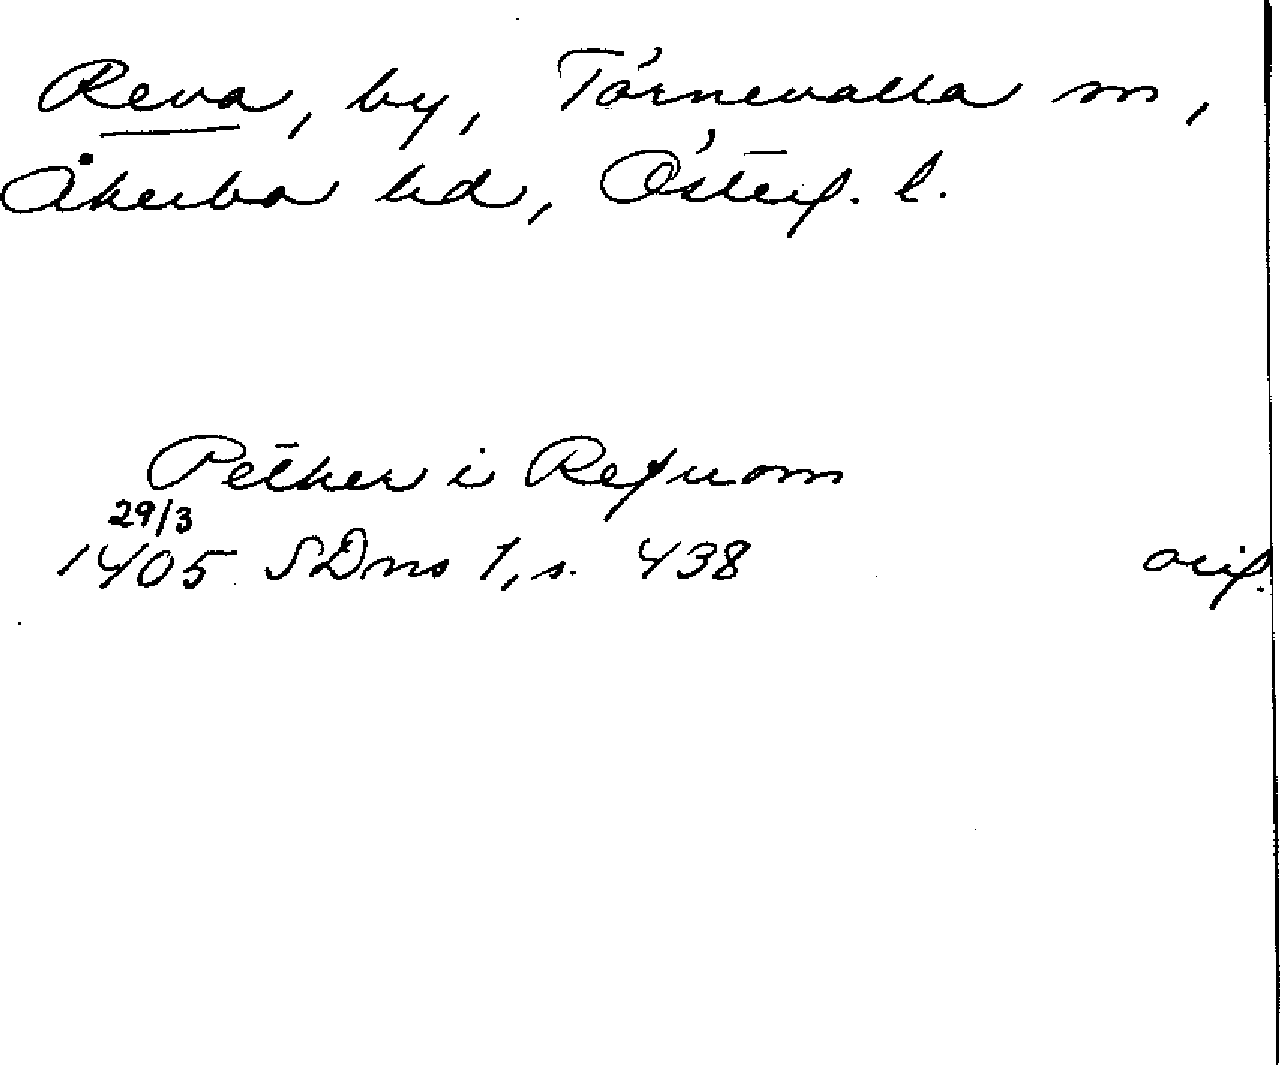 Reva, by, Törnevalla sn,
Åkerbo hd, Österg. l.
Pether i Refwom
29/3
1405 SDns 1, s. 438 orig.